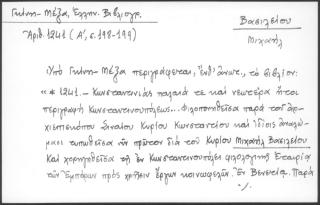 Γκίνη - Μέξα, Ἑλλην. Βιβλιογρ.
Ἀριθ. 1241 (Α´, σ. 198-199)
Βασιλείου
Μιχαήλ
Ὑπὸ Γκίνη - Μέξα περιγράφεται, ἔνθ' ἀνωτ., τὸ βιβλίον:
«* 1241. - Κωνσταντινιὰς παλαιά τε καὶ νεωτέρα ἤτοι
περιγραφὴ Κωνσταντινουπόλεως... Φιλοπονηθεῖσα παρὰ τοῦ ἀρ-
χιεπισκόπου Σιναίου Κυρίου Κωνσταντίου καὶ ἰδίοις ἀναλώ-
μασι τυπωθεῖσα νῦν πρῶτον διὰ τοῦ Κυρίου Μιχαὴλ Βασιλείου
Καὶ χορηγηθεῖσα τῇ ἐν Κωνσταντινουπόλει φιλολογικῇ Ἑταιρίᾳ
τῶν Ἐμπόρων πρὸς χρῆσιν ἔργων κοινωφελῶν. Ἐν Βενετίᾳ. Παρὰ
·/.